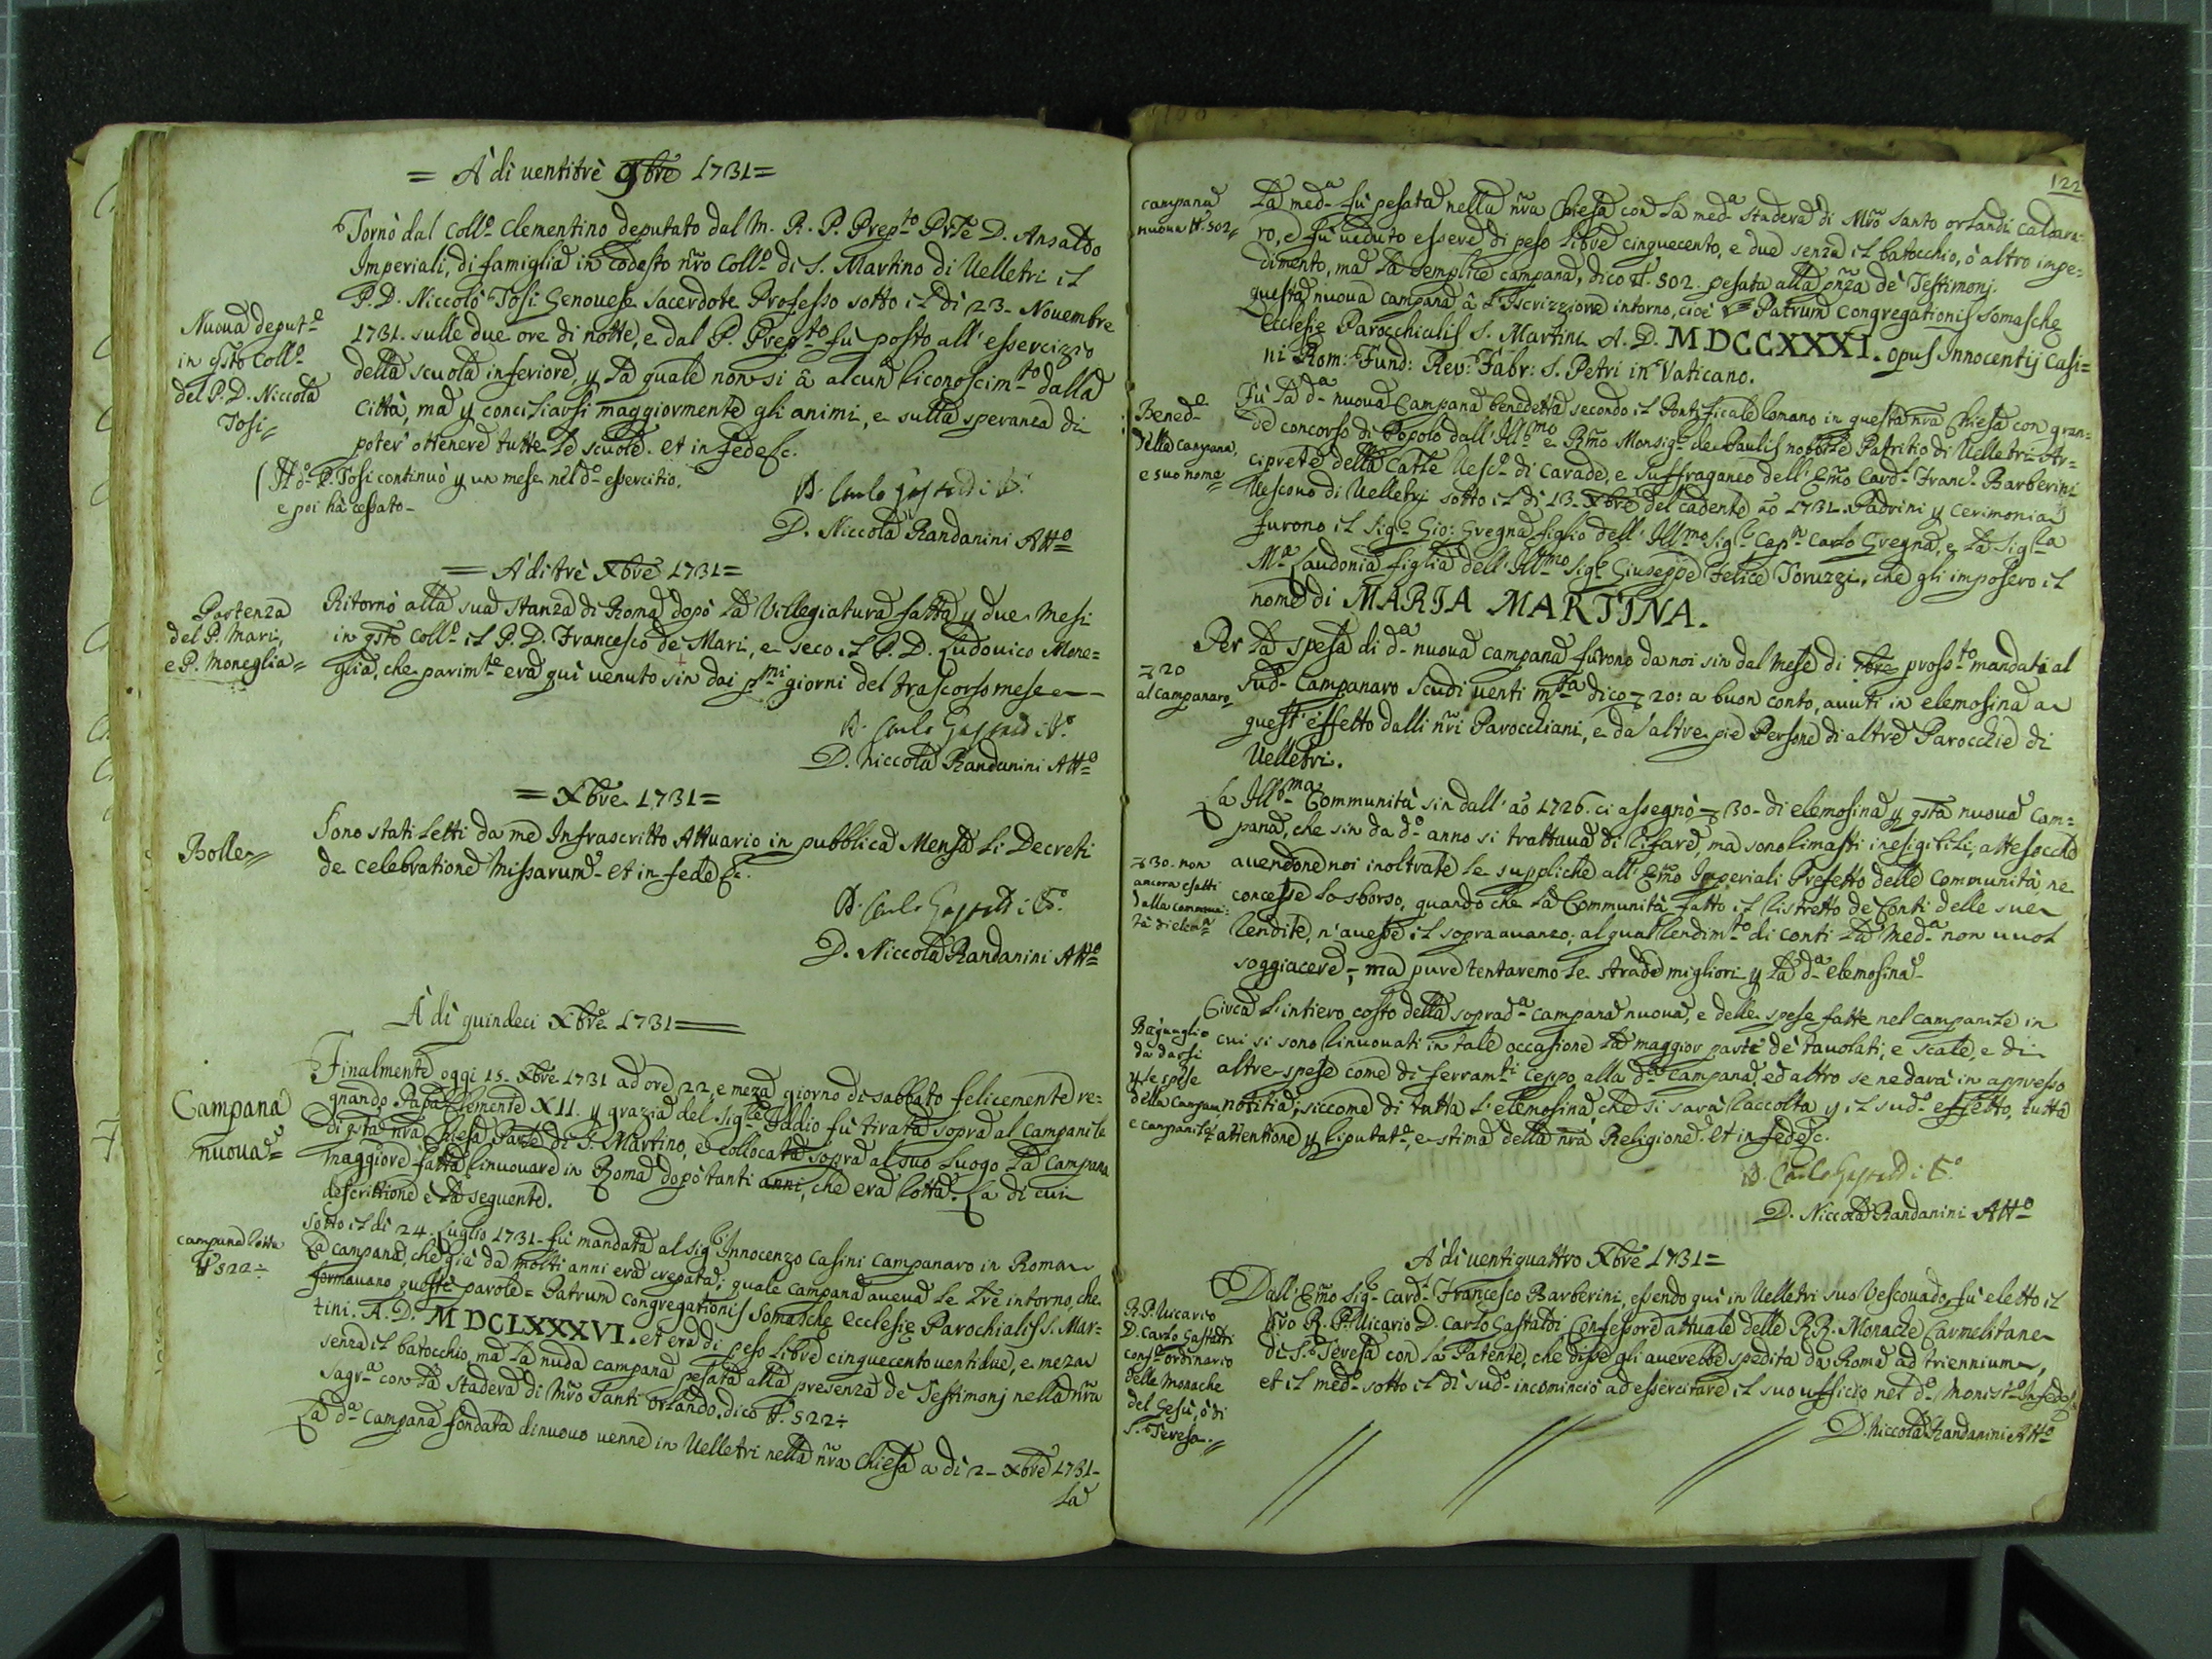 = A' dì uentitrè 9bre 1731 =
Nuoua deput.e
in qsto Coll.o
del P. D. Niccola
Tosi =
Tornò dal Coll.o Clementino deputato dal M. R. P. Prep.to Prle D. Ansaldo
Imperiali, di famiglia in codesto nro Coll.o di S. Martino di Uelletri il
P. D. Niccolò Tosi Genouese Sacerdote Professo sotto il dì 23. Nouembre
1731. sulle due ore di notte, e dal P. Prep.to fù posto all' essercizio
della scuola inferiore, y la quale non si â alcun riconoscim.to dalla
Città, ma y conciliarsi maggiormente gli animi, e sulla speranza di
poter' ottenere tutte le scuole. et in fede &c.
( Il d.o P. Tosi continuò y un mese nel d.o essercitio,
e poi hà cessato -
D. Carlo Gastaldi V.
D. Niccola Randanini Att.o
= A' di trè Xbre 1731 =
Partenza
del P. Mari,
e P. Moneglia =
Ritornò alla sua stanza di Roma dopò la Villegiatura fatta y due Mesi
in qsto Coll.o il P. D. Francesco de Mari, e seco il P. D. Ludouico Mone=
glia, che parim.te era quì uenuto sin dai p.mi giorni del trascorso mese
D. Carlo Gastaldi V.o
D. Niccola Randanini Att.o
= Xbre 1731 =
Bolle =
Sono stati letti da me Infrascritto Attuario in pubblica Mensa li Decreti
de celebratione Missarum - et in fede &c.
D. Carlo Gastaldi V.o
D. Niccola Randanini Att.o
A' dì quindeci Xbre 1731 =
Campana
nuoua =
Finalmente oggi 15. Xbre 1731 ad ore 22, e meza giorno di sabbato felicemente re=
gnando Papa Clemente XII. y grazia del Sig.re Iddio fù tirata sopra al Campanile
di qsta nra Chiesa Parle di S. Martino, e collocata sopra al suo luogo la Campana
maggiore fatta rinuouare in Roma dopò tanti anni, che era rotta. La di cui
descrittione è la seguente.
campana rotta
℔ 522 ÷
Sotto il dì 24. Luglio 1731 - fù mandata al Sig.r Innocenzo Casini Campanaro in Roma
la campana, che già da molti anni era crepata; quale campana aueua le lre intorno, che
formauano queste parole = Patrum Congregationis Somaschę Ecclesię Parochialis S. Mar=
tini. A. D. MDCLXXXVI. et era di peso libre cinquecento uentidue, e meza
senza il batocchio, ma la nuda campana pesata alla presenza de' Testimonj nella nra
Sagr.a con la stadera di Mro Santi Orlando. dico ℔. 522 ÷
La d.a Campana fondata di nuouo uenne in Uelletri nella nra Chiesa a dì 2 - Xbre 1731 -
La
122
campana
nuoua ℔. 502 =
La med.a fù pesata nella nra Chiesa con la med.a stadera di Mro Santo Orlandi Caldara=
ro, e fù ueduto essere di peso libre cinquecento, e due senza il batocchio, ò altro impe=
dimento, ma la semplice campana, dico ℔. 502. pesata alla pnza de' Testimonj.
Questa nuoua campana â l'Iscrizzione intorno, cioè = Patrum Congregationis Somaschę
Ecclesię Parocchialis S. Martini A. D. MDCCXXXI. Opus Innocentij Casi=
ni Rom: Fund: Reu: Fabr: S. Petri in Vaticano.
Bened.e
della Campana,
e suo nome
Fù la d.a nuoua Campana benedetta secondo il Pontificale Romano in questa nra Chiesa con gran=
de concorso di Popolo dall' Ill.mo e Rmo Monsig.r de Paulis nobile Patritio di Uelletri Ar=
ciprete della Catle Uesc.o di Carade, e Suffraganeo dell' Emo Card.l Franc.o Barberini
Uescouo di Uelletri sotto il dì 13. Xbre del cadente ãõ 1731. Padrini y cerimonia
furono il Sig.r Gio: Gregna figlio dell' Ill.mo Sig.r Cap.n Carlo Gregna, e la Sig.la
M.a Laudonia figlia dell' Ill.mo Sig.r Giuseppe Felice Toruzzi, che gli imposero il
nome di MARIA MARTINA.
20
al campanaro
Per la spesa di d.a nuoua campana furono da noi sin dal Mese di 7bre pross.to mandati al
sud.o Campanaro Scudi uenti m.ta dico 20: a buon conto, auuti in elemosina a
quest' effetto dalli nri Parocchiani, e da altre pie Persone di altre Parocchie di
Uelletri.
30. non
ancora esatti
dalla commu=
tà di elem.a
La Ill.ma Communità sin dall' ão 1726. ci assegnò 30 - di elemosina y qsta nuoua Cam=
pana, che sin da d.o anno si trattaua di rifare, ma sono rimasti inesigibili, attesocche
auendone noi inoltrate le suppliche all' Emo Imperiali Prefetto delle Communità, ne
concesse lo sborso, quando che la Communità fatto il ristretto de' Conti delle sue
rendite, n'auesse il soprauanzo; al qual rendim.to di conti la Med.a non uuol
soggiacere -; ma pure tentaremo le strade migliori y la d.a elemosina -
Raguaglio
da darsi
y le spese
della Campana
e campanile
Circa l'intiero costo della soprad.a campana nuoua, e delle spese fatte nel campanile in
cui si sono rinuouati in tale occasione la maggior parte de' tauolati, e scale, e di
altre spese come di ferram.ti ceppo alla d.a Campana, ed altro se ne darà in appresso
notitia, siccome di tutta l'elemosina che si sarà raccolta y il sud.o effetto, tutta
attentione y riputat.e, e stima della nra Religione. et in fede &c.
D. Carlo Gastaldi V.o
D. Niccola Randanini Att.o
A' dì uentiquattro Xbre 1731 =
R. P. Uicario
D. Carlo Gastaldi
conf.re ordinario
delle Monache
del Gesù, ò di
S. Teresa. =
Dall' Emo Sig.r Card.l Francesco Barberini, essendo quì in Uelletri suo Vescouado, fù eletto il
Nro R. P. Uicario D. Carlo Gastaldi Confessore attuale delle RR. Monache Carmelitane
di S. Teresa con la Patente, che disse gli auerebbe spedita da Roma ad triennium,
et il med.o sotto il dì sud.o incominciò ad essercitare il suo ufficio nel d.o Monist.o In fede &c.
D. Niccola Randanini Att.o